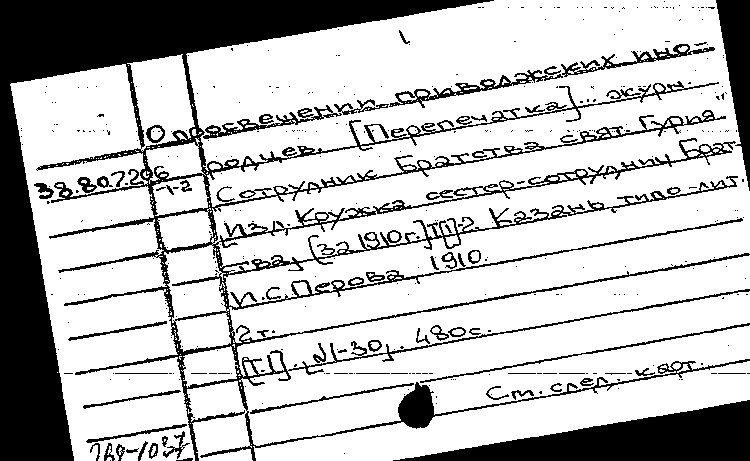 О просвещении приволжских ино-
родцев. [Перепечатка]... журн.
38.807.206
1-2
Сотрудник Братства свят. Гурия."
Изд. Кружка сестер-сотрудниц Брат-
ства, [за 1910г.] [I]-2. Казань, типо-лит.
И.С.Перова, 1910.
2 т.
[Т.I]., №1-30,. 480с.
См. след. карт.
268-1037